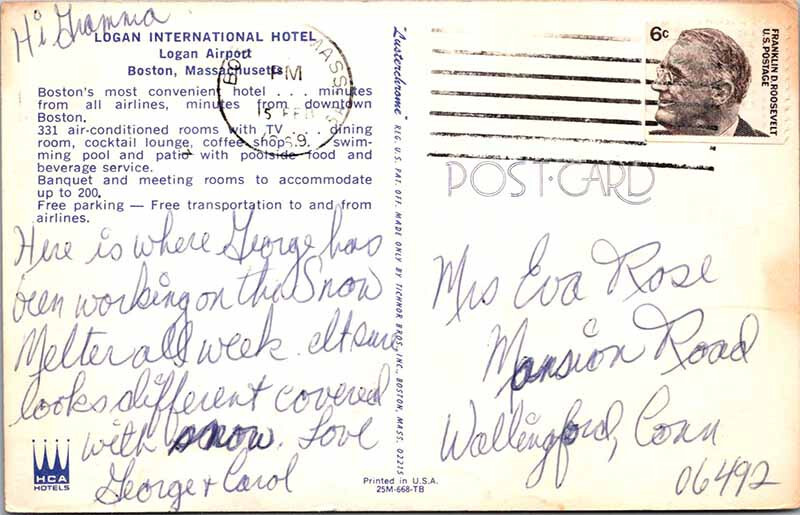 Hi Gramma
LOGAN INTERNATIONAL HOTEL
Logan Airport
Boston, Massachusetts
Boston's most convenient hotel . . . minutes
from all airlines, minutes from downtown
Boston.
331 air-conditioned rooms with TV . . . dining
room, cocktail lounge, coffee shop, swim-
ming pool and patio with poolside food and
beverage service.
Banquet and meeting rooms to accommodate
up to 200.
Free parking — Free transportation to and from
airlines.
Here is where George has
been working on the Snow
Melter all week. It sure
looks different covered
with snow. Love
George + Carol
HCA
HOTELS
MASS
PM
15 FEB
"Lusterchrome" REG. U.S. PAT. OFF. MADE ONLY BY TICHNOR BROS., INC., BOSTON, MASS. 02215
Printed in U.S.A.
25M-668-TB
6c
FRANKLIN D. ROOSEVELT
U.S. POSTAGE
POST·CARD
Mrs Eva Rose
Mansion Road
Wallingford, Conn
06492